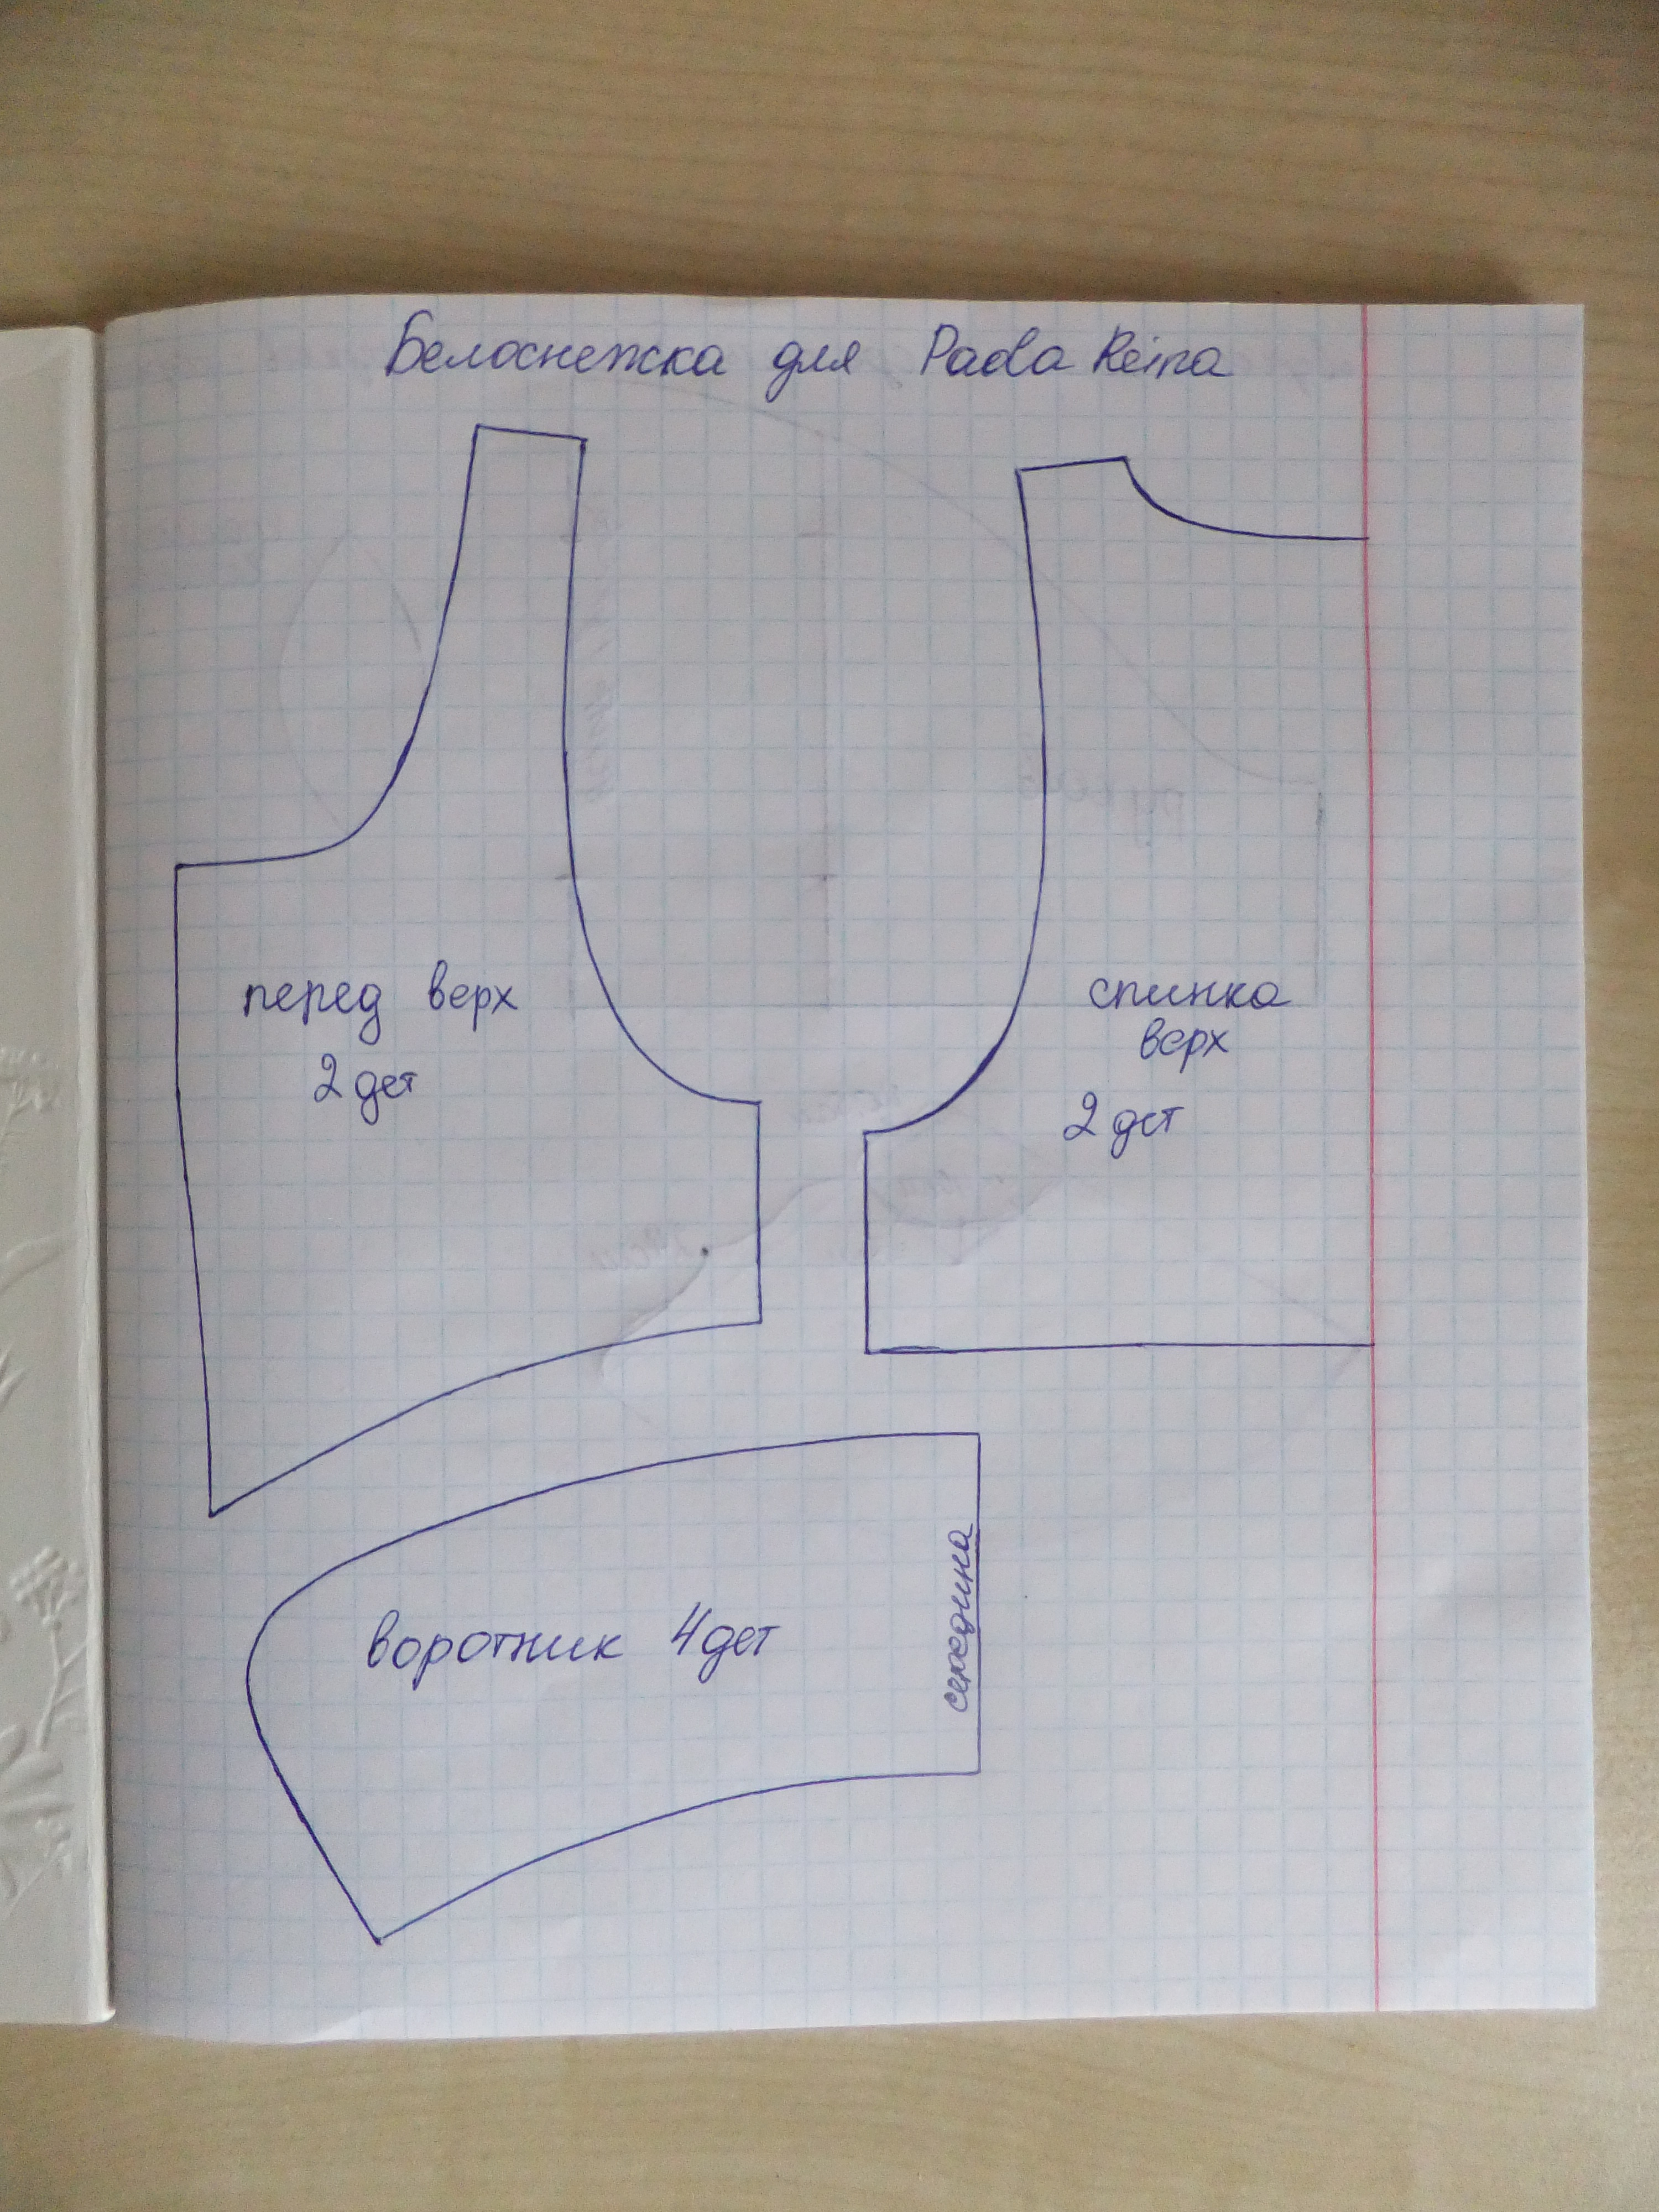 Белоснежка для Paola Reina
перед верх
2 дет
спинка
верх
2 дет
воротник 4 дет
середина